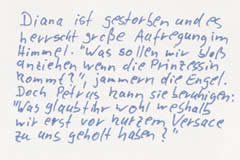 Diana ist gestorben und es
herrscht große Aufregung im
Himmel. "Was sollen wir bloß
anziehen wenn die Prinzessin
kommt?", jammern die Engel.
Doch Petrus kann sie beruhigen:
"Was glaubt ihr wohl weshalb
wir erst vor kurzem Versace
zu uns geholt haben?"